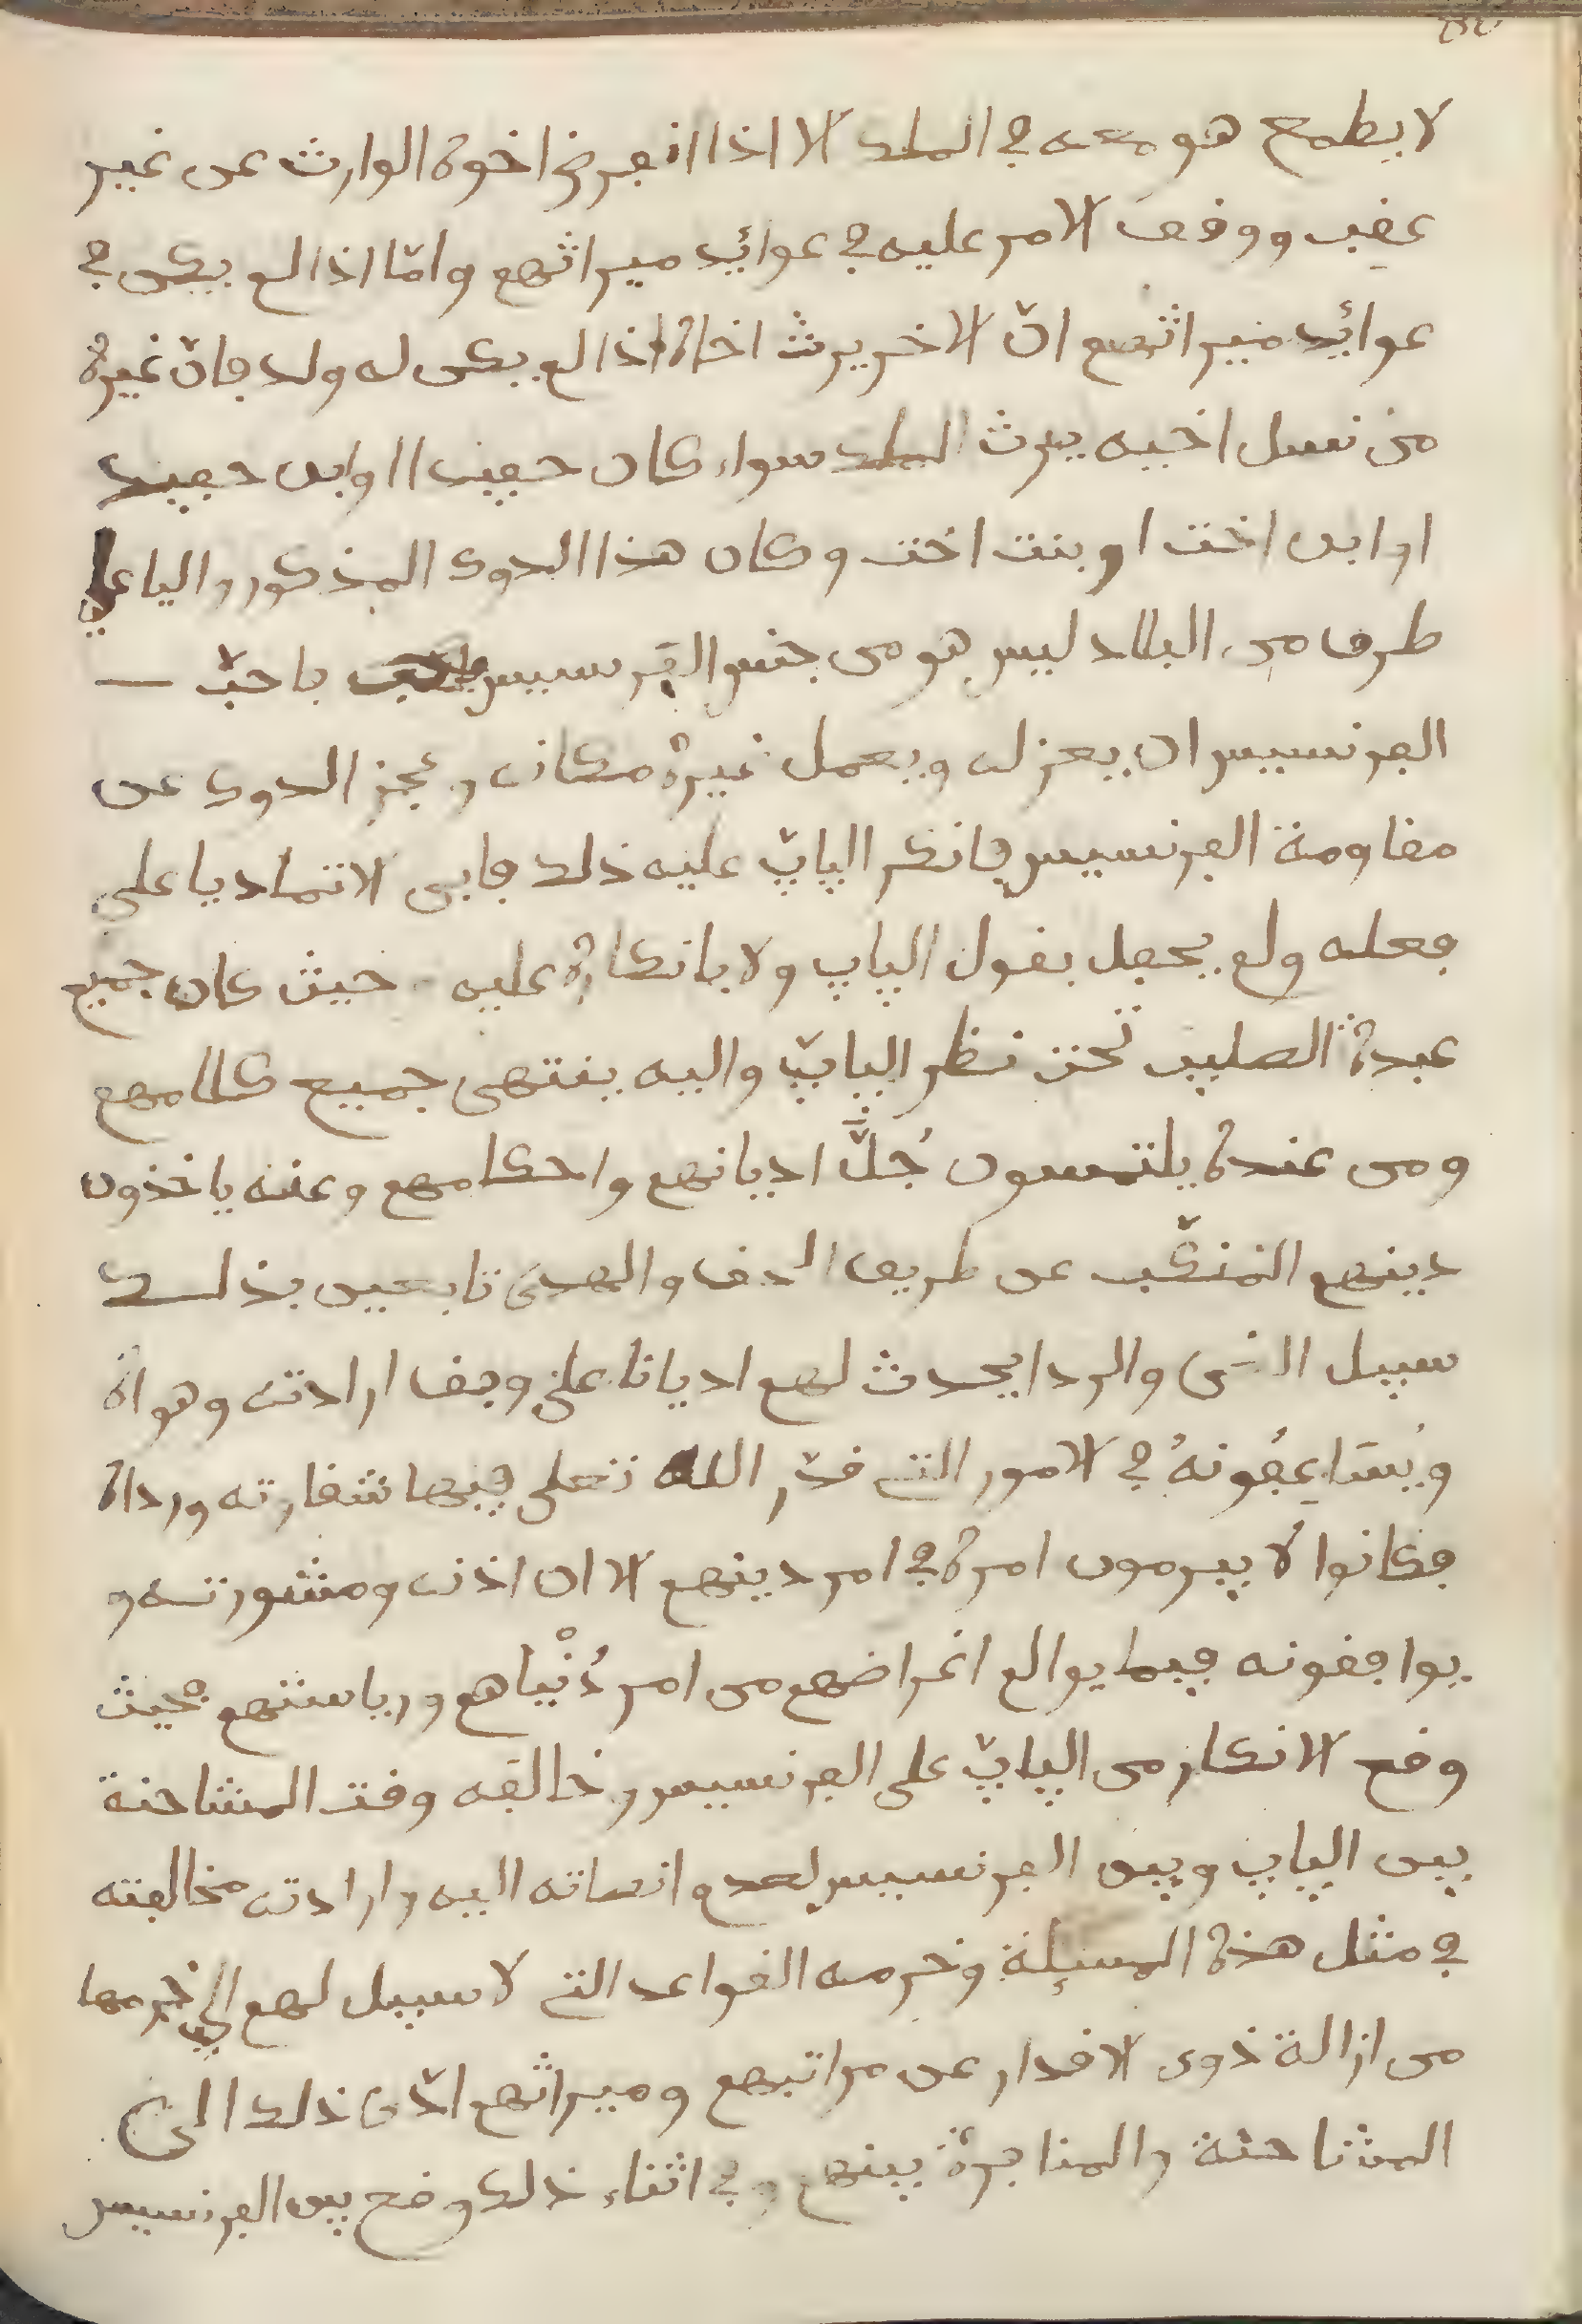 لا يطمع هو معه في الملك الا اذا انقرض اخوة الوارث عن غير
عقب ووقف الامر عليه في عوائد ميراثهم وامّا اذا لم يكن في
عوائد ميراثهم انّ الاخ يرث اخاه اذا لم يكن له ولد فانّ غيره
من نسل اخيه يرث الملك سواء كان حفيدا او ابن حفيد
او ابن اخت او بنت اخت وكان هذا الدوك المذكور واليا على
طرف من البلاد ليس هو من جنس الفرنسيس فاحبّ
الفرنسيس ان يعزله ويعمل غيره مكانه وعجز الدوك عن
مقاومة الفرنسيس فانكر الپاپّ عليه ذلك فابى الا تماديا على
فعله ولم يحفل بقول الپاپ ولا بانكاره عليه حيث كان جميع
عبدة الصليب تحت نظر الپاپّ واليه ينتهى جميع كلامهم
ومن عنده يلتمسون جُلَّ اديانهم واحكامهم وعنه ياخذون
دينهم المنكّب عن طريق الحق والهدى تابعين بذلك
سبيل الغى والردا يحدث لهم اديانا على وفق ارادته وهواه
ويُسَاعِفُونهُ في الامور التى قدّر الله تعلى فيها شقارته ورداه
فكانوا لا يبرمون امره في امر دينهم الا ان اذنه ومشورته و
يوافقونه فيما يوالم اغراضهم من امر دُنْياهم ورياستهم فحيث
وقع الانكار من الپاپّ على الفرنسيس وخالفه وقت المشاحنة
بين الپاپ وبين الفرنسيس لعدم انصاته اليه وارادته مخالفته
في مثل هذه المسئلة وخرمه القواعد التى لا سبيل لهم الى خرمها
من ازالة ذوى الاقدار عن مراتبهم وميراثهم ادّى ذلك الى
المشاحنة والمنافرة بينهم وفي اثناء ذلك وقع بين الفرنسيس